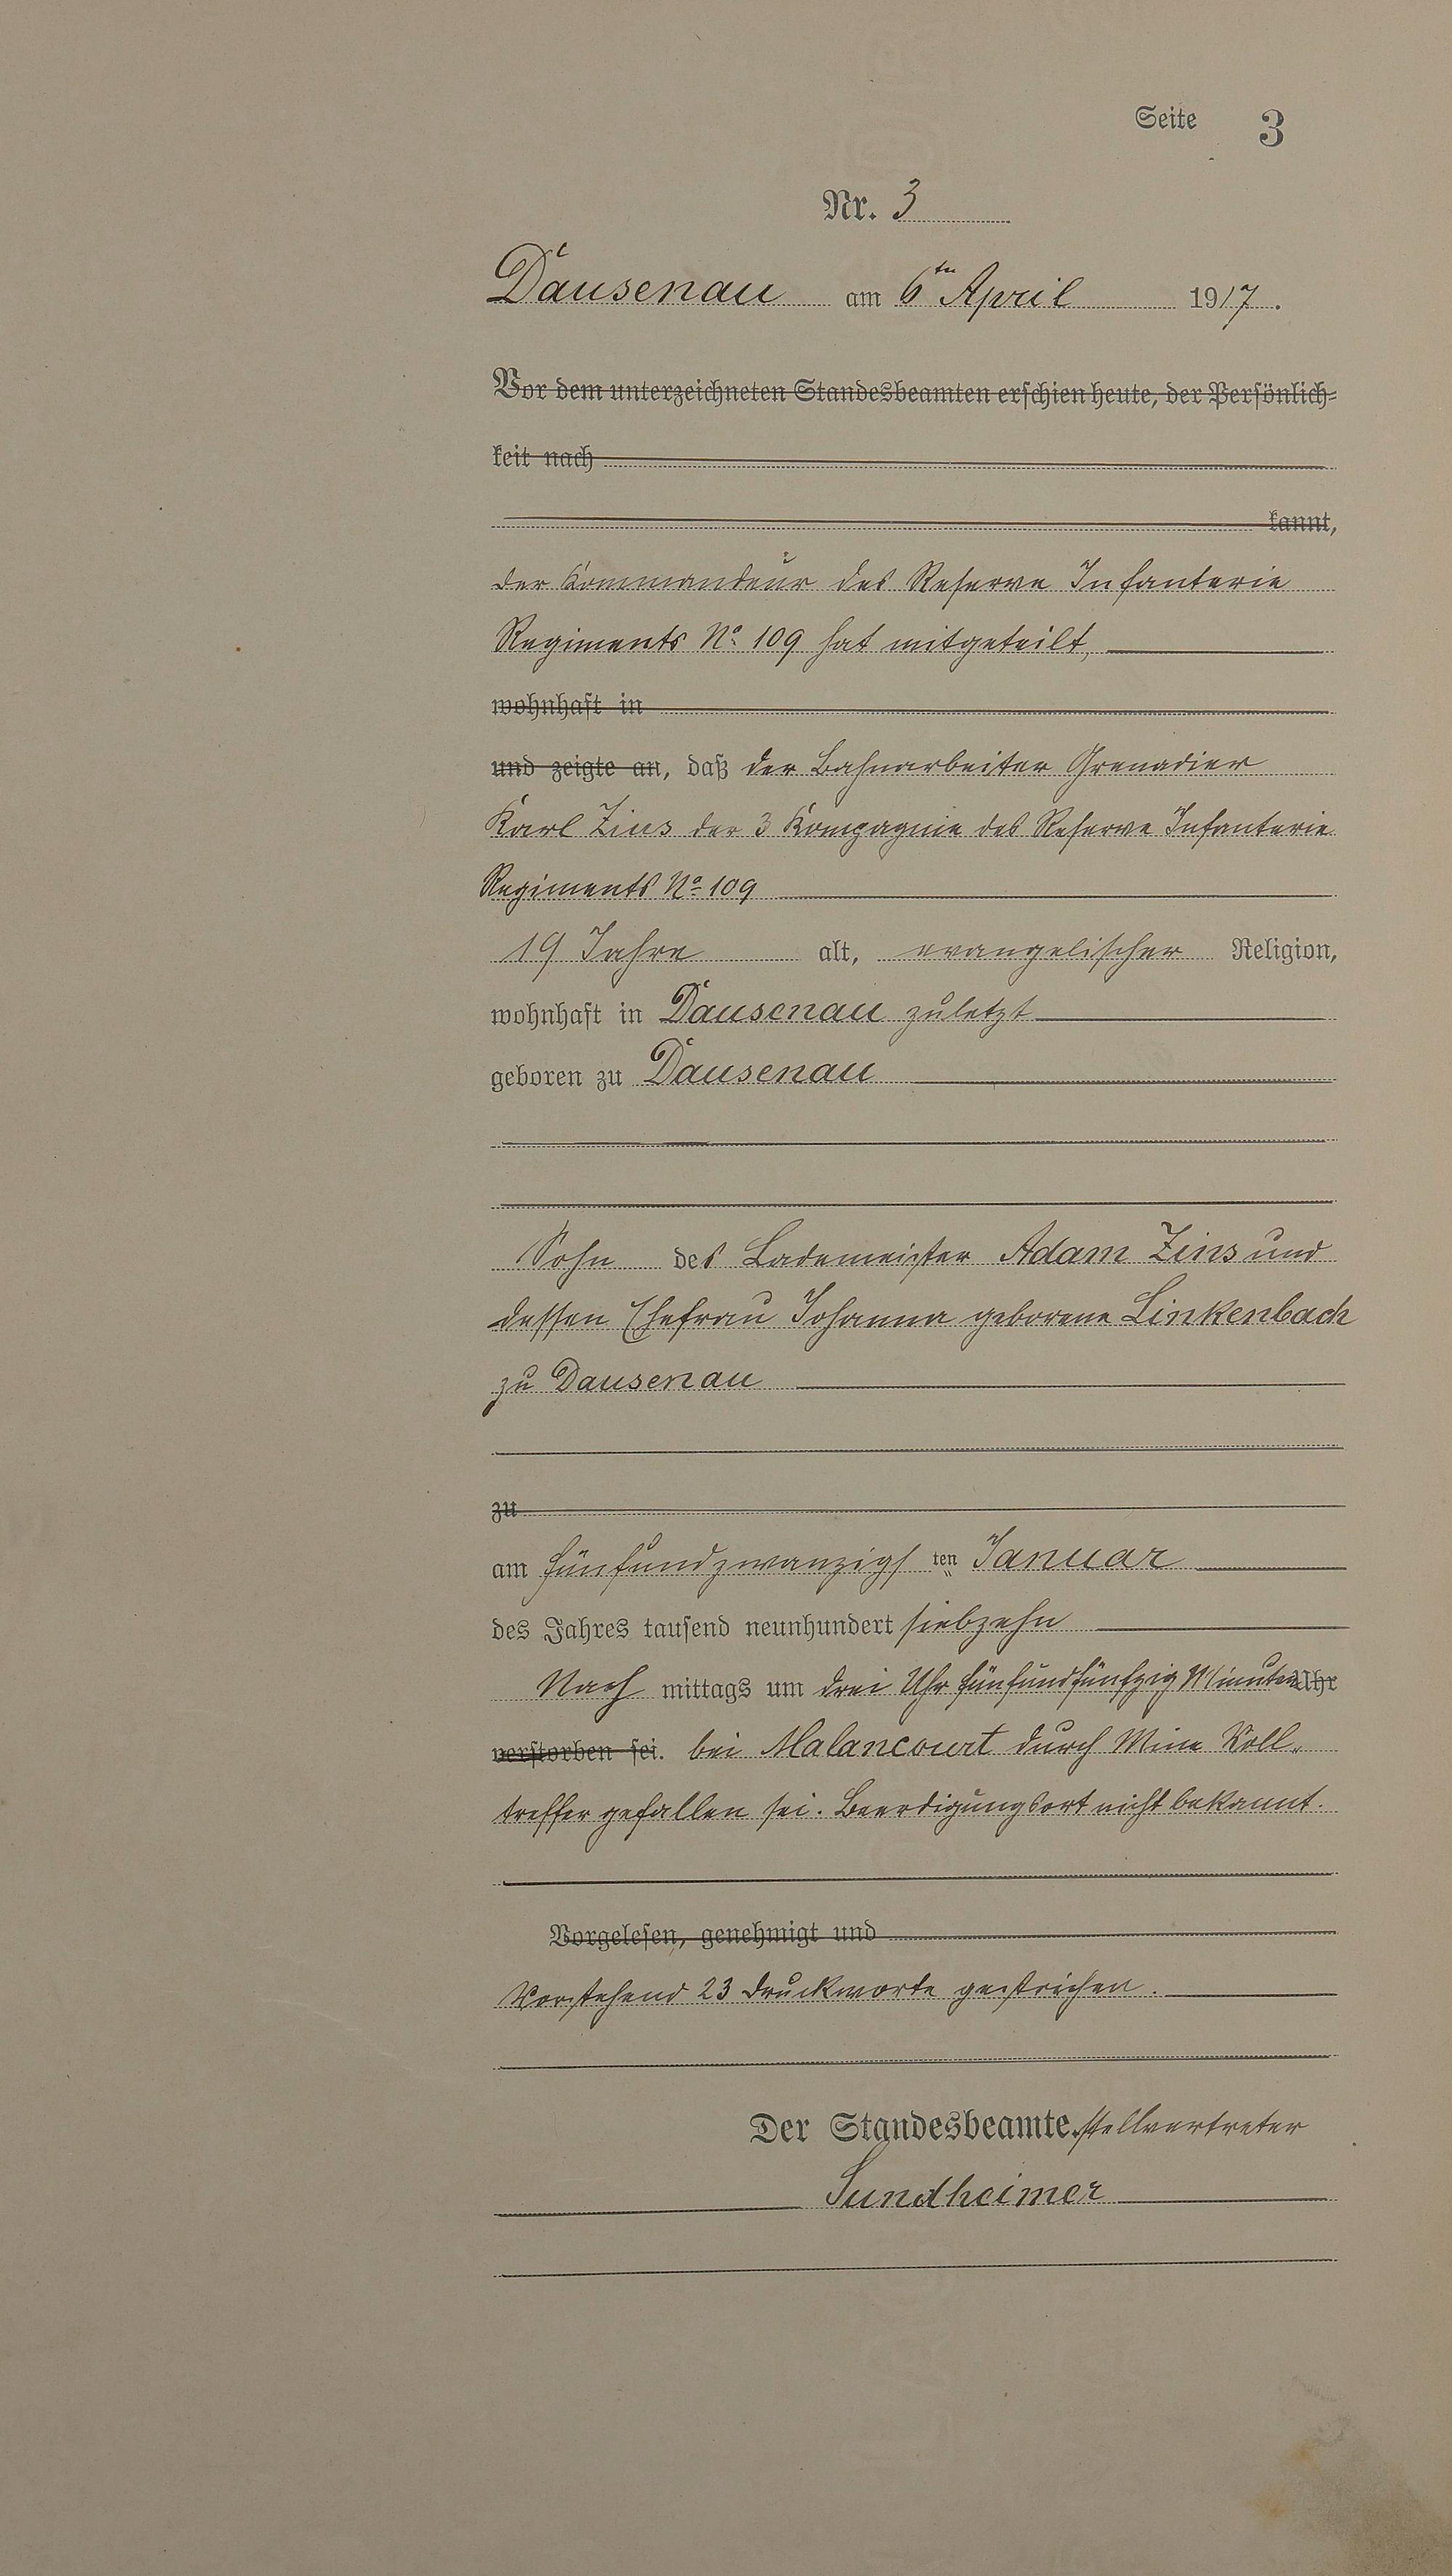 Seite 3
Nr. 3
Dausenau am 6ten April 1917.
Vor dem unterzeichneten Standesbeamten erschien heute, der Persönlich-
keit nach
kannt,
der Kommandeur des Reserve Infanterie
Regiments No. 109 hat mitgeteilt,
wohnhaft in
und zeigte an, daß der Bahnarbeiter Grenadier
Karl Zins der 3 Kompagnie des Reserve Infanterie
Regiments No 109
19 Jahre alt, evangelischer Religion,
wohnhaft in Dausenau zuletzt
geboren zu Dausenau
Sohn des Lademeister Adam Zins und
dessen Ehefrau Johanna geborene Linkenbach
zu Dausenau
zu
am fünfundzwanzigsten Januar
des Jahres tausend neunhundert siebzehn
Nach mittags um drei Uhr fünfundfünfzig Minuten Uhr
verstorben sei. bei Malancourt durch Mine Voll-
treffer gefallen sei. Beerdigungsort nicht bekannt.
Vorgelesen, genehmigt und
Vorstehend 23 Druckworte gestrichen.
Der Standesbeamte. stellvertreter
Sundheimer